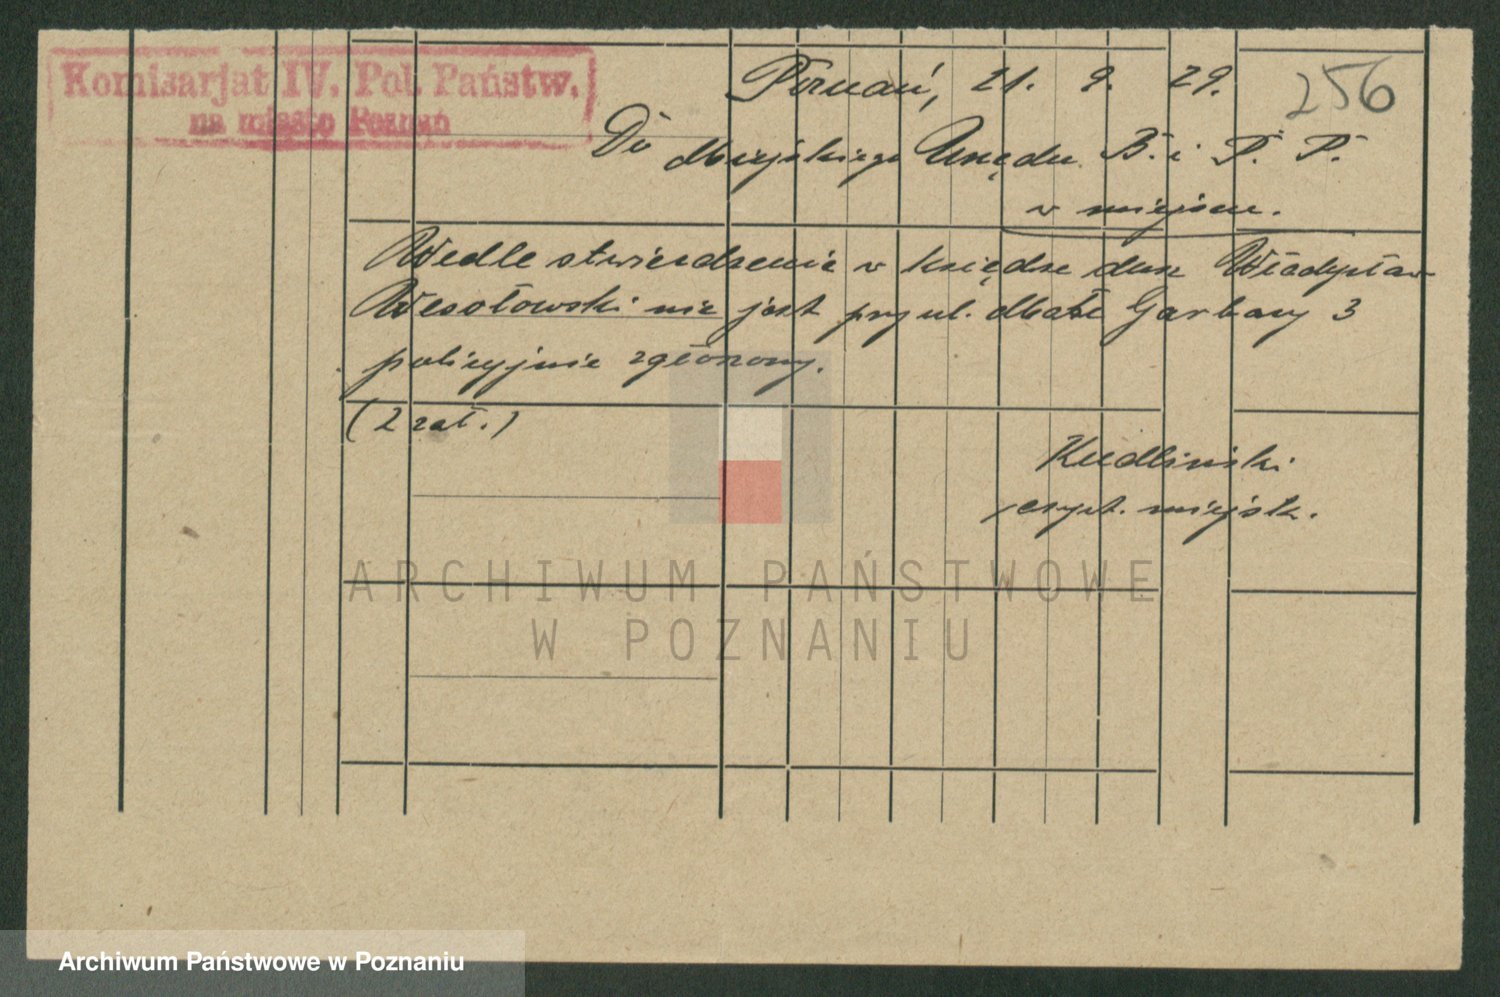 Komisarjat IV. Pol. Państw.
na miasto Poznań
Poznań, 21. 9. 29.
256
Do Miejskiego Urzędu B. i P. P.
w miejscu.
Wedle stwierdzenia w księdze dusz Władysław
Wesołowski nie jest przy ul. Małe Garbary 3
policyjnie zgłoszony.
(2 zał.)
Kudliński
miejsk.
ARCHIWUM PAŃSTWOWE
W POZNANIU
Archiwum Państwowe w Poznaniu